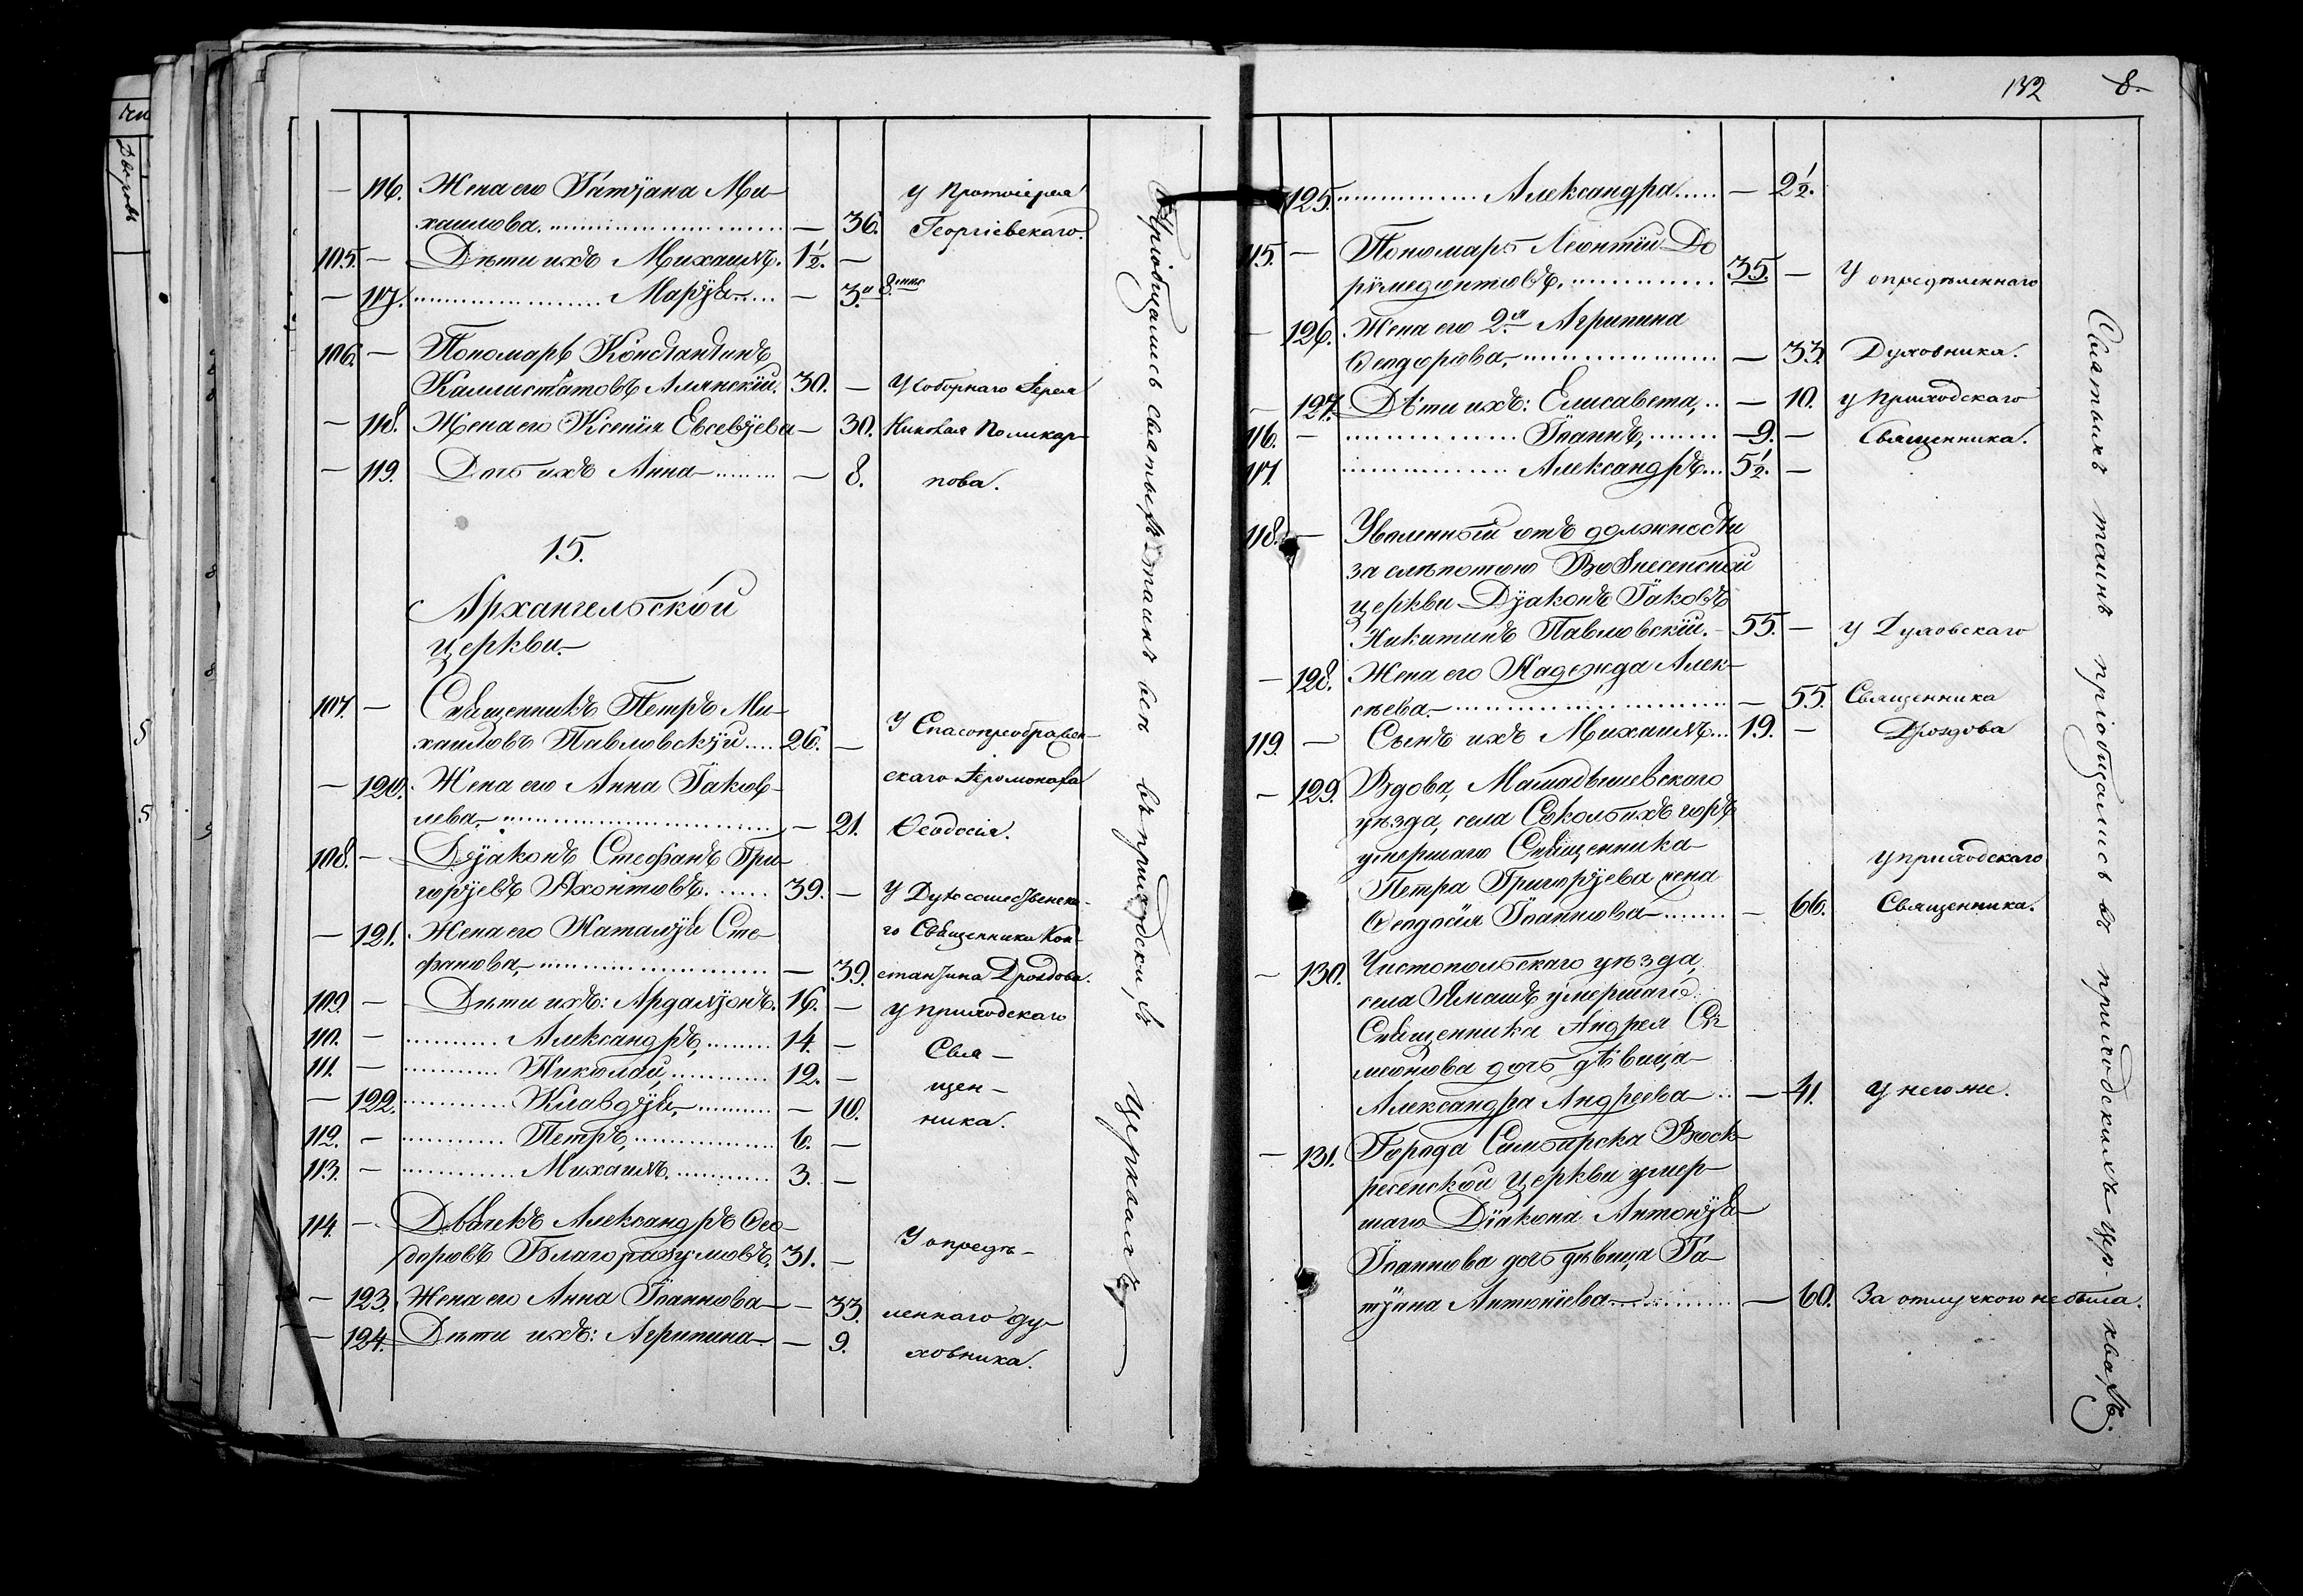 чи
Дворовъ
— 116. Жена его Татїана Ми-
хаилова. — 36. У Протоіерея Георгіевскаго.
105. — Дѣти ихъ Михаилъ. 1½. —
— 117. Марїя — 3." 8.
106. — Пономарь Константинъ
Каллистратовъ Алянскїй. 30. — У Соборнаго Іерея
— 118. Жена его Ксенїя Евсевїева — 30. Николая Поликар-
— 119. Дочь ихъ Анна — 8. пова.
15.
Архангельской
церкви.
107. — Священникъ Петръ Ми-
хаиловъ Павловскїй 26. — У Спасопреображен-
— 120. Жена его Анна Їаков- скаго Іеромонаха
лева, — 21. Ѳеодосія.
108. — Дїаконъ Стефанъ Гри-
горїевъ Яхонтовъ. 39. — У Духосошественска-
— 121. Жена его Наталїя Сте- го Священника Кон-
фанова, — 39. стантина Дроздова.
109. — Дѣти ихъ: Ардалїонъ. 16. — У приходскаго
110. — Александръ, 14. — Свя-
111. — Николай, 12. — щен-
— 122. Клавдїя, — 10. ника.
112. — Петръ, 6. —
113. — Михаилъ. 3. —
114. — Дьячекъ Александръ Ѳео-
доровъ Благоразумовъ, 31. — У опредѣ-
— 123. Жена его Анна Їоаннова — 33. леннаго ду-
— 124. Дѣти ихъ: Агрипина — 9. ховника.
Пріобщались святыхъ таинъ всѣ въ приходскихъ церквахъ
132 8.
125. Александра — 2½.
115. — Пономарь Леонтїй До
римедонтовъ, 35. — У опредѣленнаго
— 126. Жена его 2я Агрипина
Ѳеодорова, — 33. Духовника.
— 127. Дѣти ихъ: Елисавета, — 10. У приходскаго
116. — Їоаннъ, 9. — Священника.
117. Александръ 5½. —
118. — Уволенный отъ должности
за слѣпотою Вознесенской
церкви Дїаконъ Їаковъ
Никитинъ Павловскїй. 55. — У Духовскаго
— 128. Жена его Надежда Алек-
сѣева. — 55. Священника
119 — Сынъ ихъ Михаилъ 19. — Дроздова
— 129. Вдова, Мамадышевскаго
уѣзда, села Сокольихъ горъ,
умершаго Священника У приходскаго
Петра Григорїева жена
Ѳеодосїя Їоаннова — 66. Священника.
— 130. Чистопольскаго уѣзда,
села Ямашъ умершаго
Священника Андрея Си-
меонова дочь дѣвица
Александра Андреева — 41. У него же.
— 131. Города Симбирска Воск-
ресенской церкви умер-
шаго Дїакона Антонїя
Їоаннова дочь дѣвица Та-
тїана Антонїева — 60. За отлучкою не была.
Святыхъ таинъ пріобщались въ приходскихъ цер- квахъ.